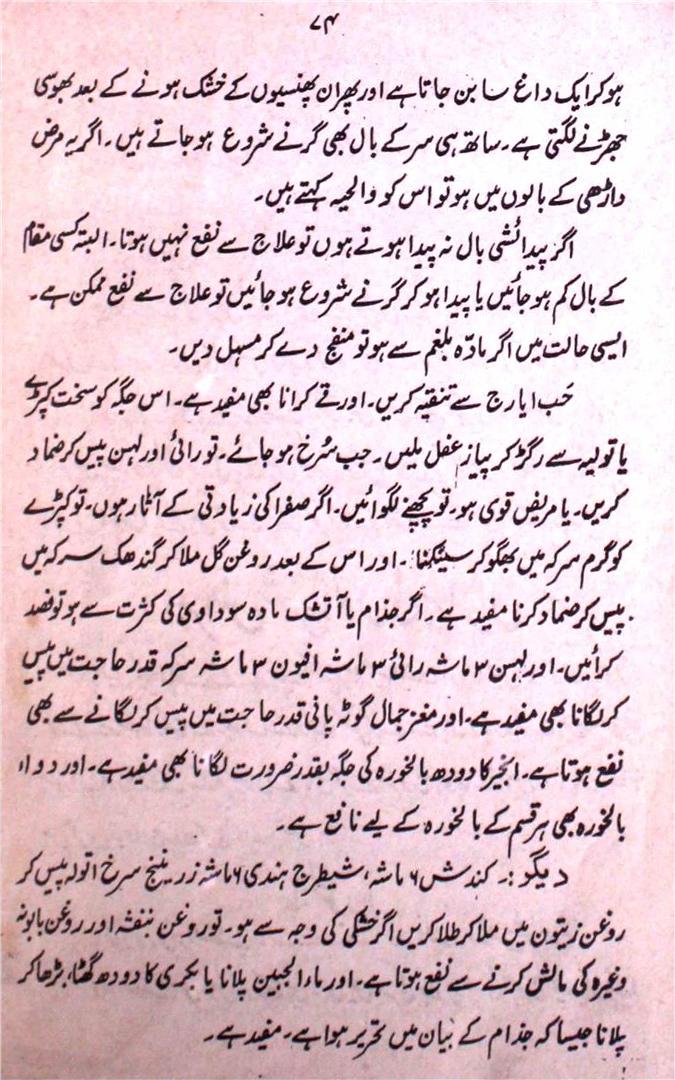 ۷۴
ہو کر ایک داغ سا بن جاتا ہے اور پھر ان پھنسیوں کے خشک ہونے کے بعد بھوسی
جھڑنے لگتی ہے۔ ساتھ ہی سر کے بال بھی گرنے شروع ہو جاتے ہیں۔ اگر یہ مرض
داڑھی کے بالوں میں ہو تو اس کو والحیہ کہتے ہیں۔
اگر پیدائشی بال نہ پیدا ہوتے ہوں تو علاج سے نفع نہیں ہوتا۔ البتہ کسی مقام
کے بال کم ہو جائیں یا پیدا ہو کر گرنے شروع ہو جائیں تو علاج سے نفع ممکن ہے۔
ایسی حالت میں اگر مادّہ بلغم سے ہو تو منضج دے کر مسہل دیں۔
حَب ایارج سے تنقیّہ کریں۔ اور قے کرانا بھی مفید ہے۔ اس جگہ کو سخت کپڑے
یا تولیہ سے رگڑ کر پیاز عفل ملیں۔ جب سُرخ ہو جائے۔ تو رائی اور لہسن پیس کر ضماد
کریں۔ یا مریض قوی ہو۔ تو پچھنے لگوائیں۔ اگر صفرا کی زیادتی کے آثار ہوں۔ تو کپڑے
کو گرم سرکہ میں بھگو کر سینکنا۔ اور اس کے بعد روغن گل ملا کر گندھک سرکہ میں
پیس کر ضماد کرنا مفید ہے۔ اگر جذام یا آتشک مادہ سوداوی کی کثرت سے ہو تو فصد
کرائیں۔ اور لہسن ۳ ماشہ رائی ۳ ماشہ افیون ۳ ماشہ سرکہ قدر حاجت میں پیس
کر لگانا بھی مفید ہے۔ اور مغز جمال گوٹہ پانی قدر حاجت میں پیس کر لگانے سے بھی
نفع ہوتا ہے۔ انجیر کا دودھ بالخورہ کی جگہ بقدر ضرورت لگانا بھی مفید ہے۔ اور دواء
بالخورہ بھی ہر قسم کے بالخورہ کے لیے نافع ہے۔
دیگو :۔ کندش ۶ ماشہ، شیطرج ہندی ۶ ماشہ زرینج سرخ اتولہ پیس کر
روغن زیتون میں ملا کر طلا کریں اگر خشکی کی وجہ سے ہو۔ تو روغن بنفشہ اور روغن بابونہ
وغیرہ کی مالش کرنے سے نفع ہوتا ہے۔ اور ماء الجبین پلانا یا بکری کا دودھ گھٹا، بڑھا کر
پلانا جیسا کہ جذام کے بیان میں تحریر ہوا ہے۔ مفید ہے۔